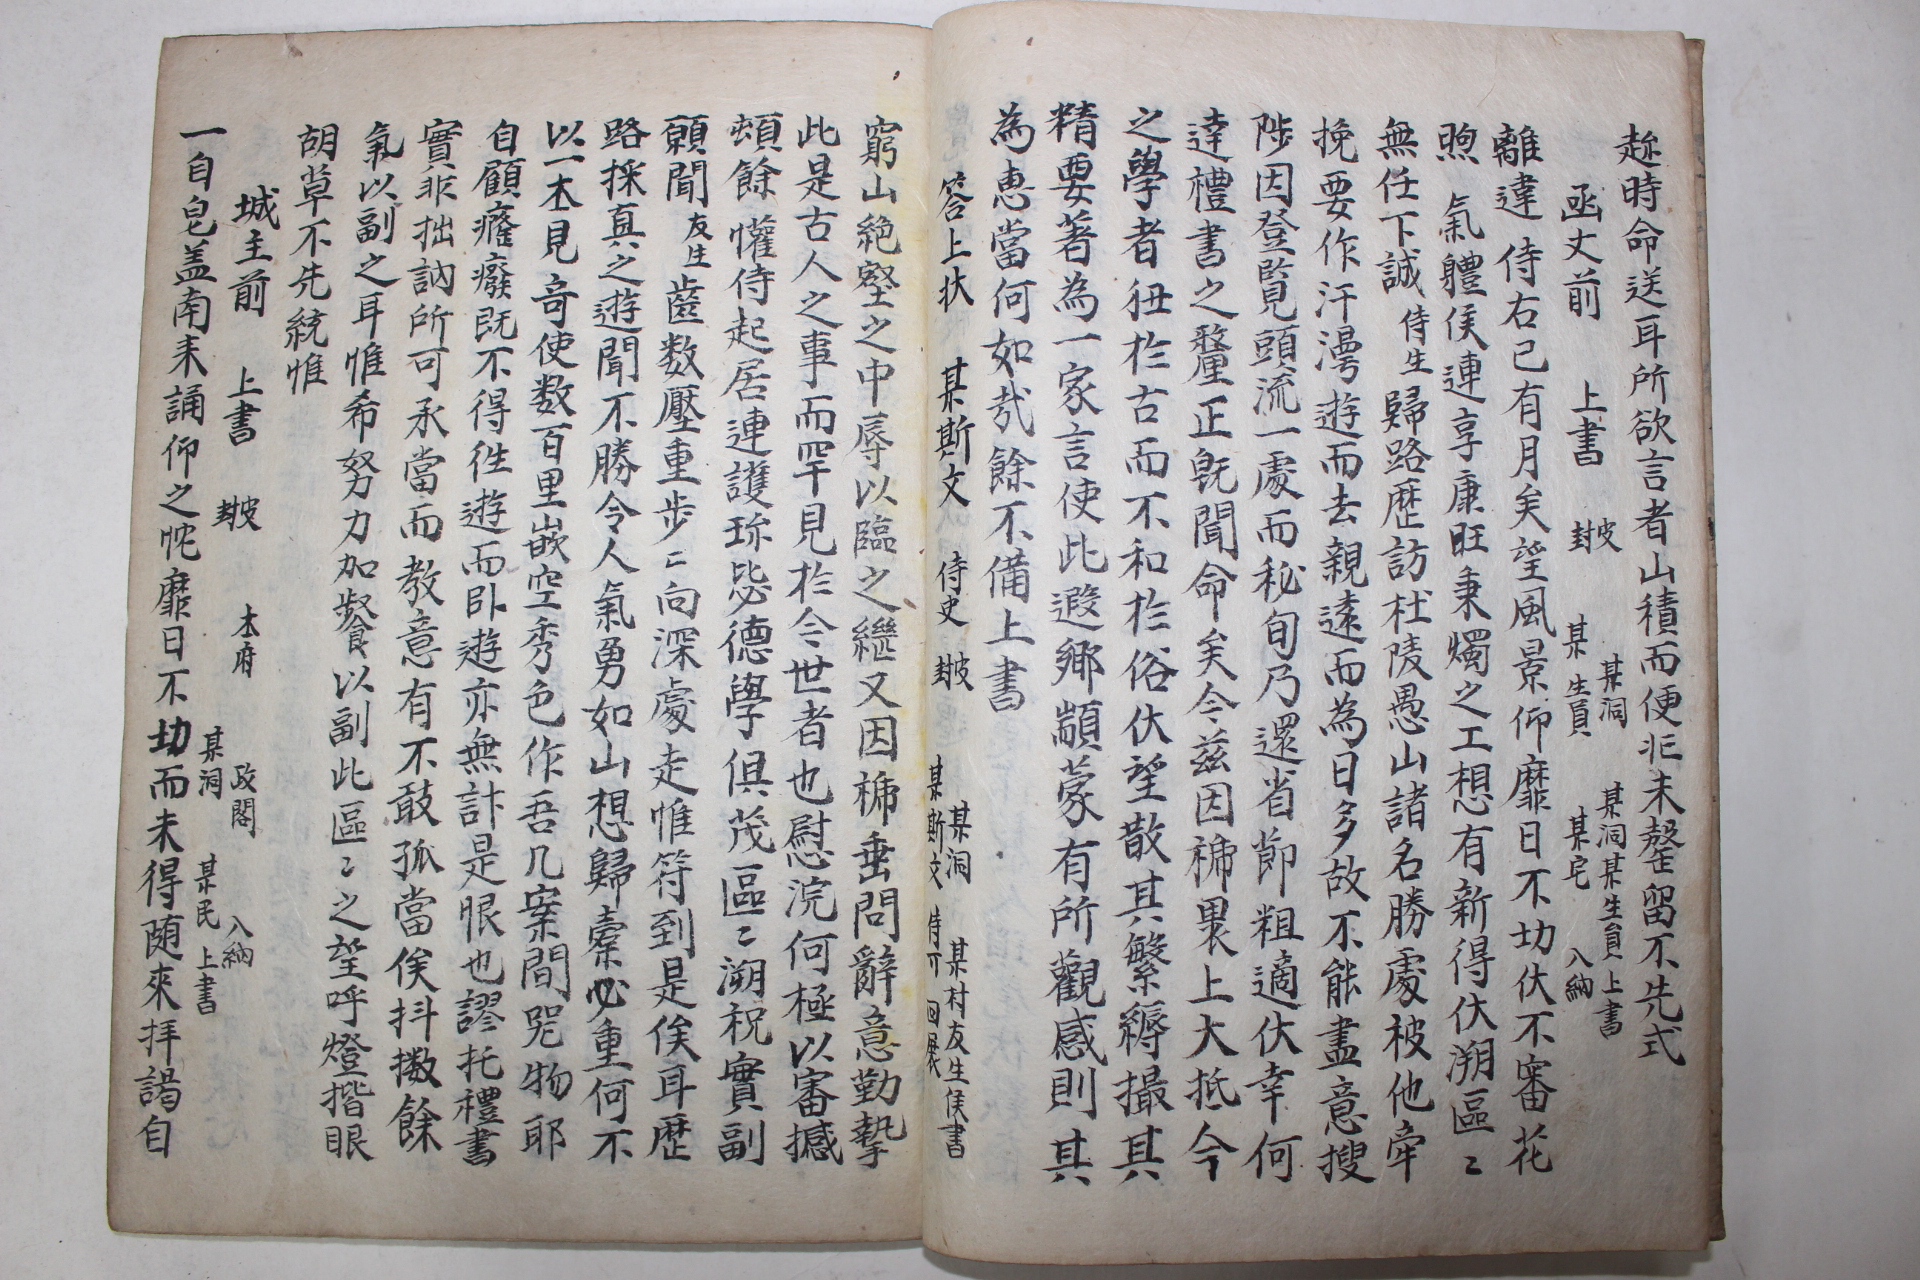 趂時命送耳所欲言者山積而便忙未罄留不先式
函丈前 上書 皮封 某生員 某宅 入納
某洞 某洞某生員上書
離違 侍右已有月矣望風景仰靡日不切伏不審花
煦 氣軆侯連享康旺秉燭之工想有新得伏溯區〻
無任下誠侍生歸路歷訪杜陵愚山諸名勝處被他牽
挽要作汗漫遊而去親遠而為日多故不能盡意搜
陟因登覽頭流一處而秘旬乃還省節粗適伏幸何
達禮書之釐正旣聞命矣今玆因褫褁上大抵今
之學者狃扵古而不和扵俗伏望散其繁縟撮其
精要著為一家言使此遐鄉顓蒙有所觀感則其
為惠當何如哉餘不備上書
答上狀 某斯文 侍史 皮封 某洞 某村友生侯書
某斯文 侍可 回展
窮山絶壑之中辱以臨之継又因褫垂問辭意勤摯
此是古人之事而罕見扵今世者也慰浣何極以審撼
頓餘懽侍起居連護珎毖德學俱茂區〻溯祝實副
願聞友生齒数壓重步〻向深處走惟符到是俟耳歷
路採真之遊聞不勝令人氣勇如山想歸槖必重何不
以一本見竒使数百里嵌空秀色作吾几案間𠒋物耶
自顧癃癈既不得徃遊而卧遊亦無計是恨也謬托禮書
實非拙訥所可承當而教意有不敢孤當俟抖擻餘
氣以副之耳惟希努力加餐以副此區〻之望呼燈揩眼
胡草不先統惟
城主前 上書 皮封 本府 政閣 入納
某洞 某民上書
一自皂盖南来誦仰之忱靡日不切而未得随來拝謁自